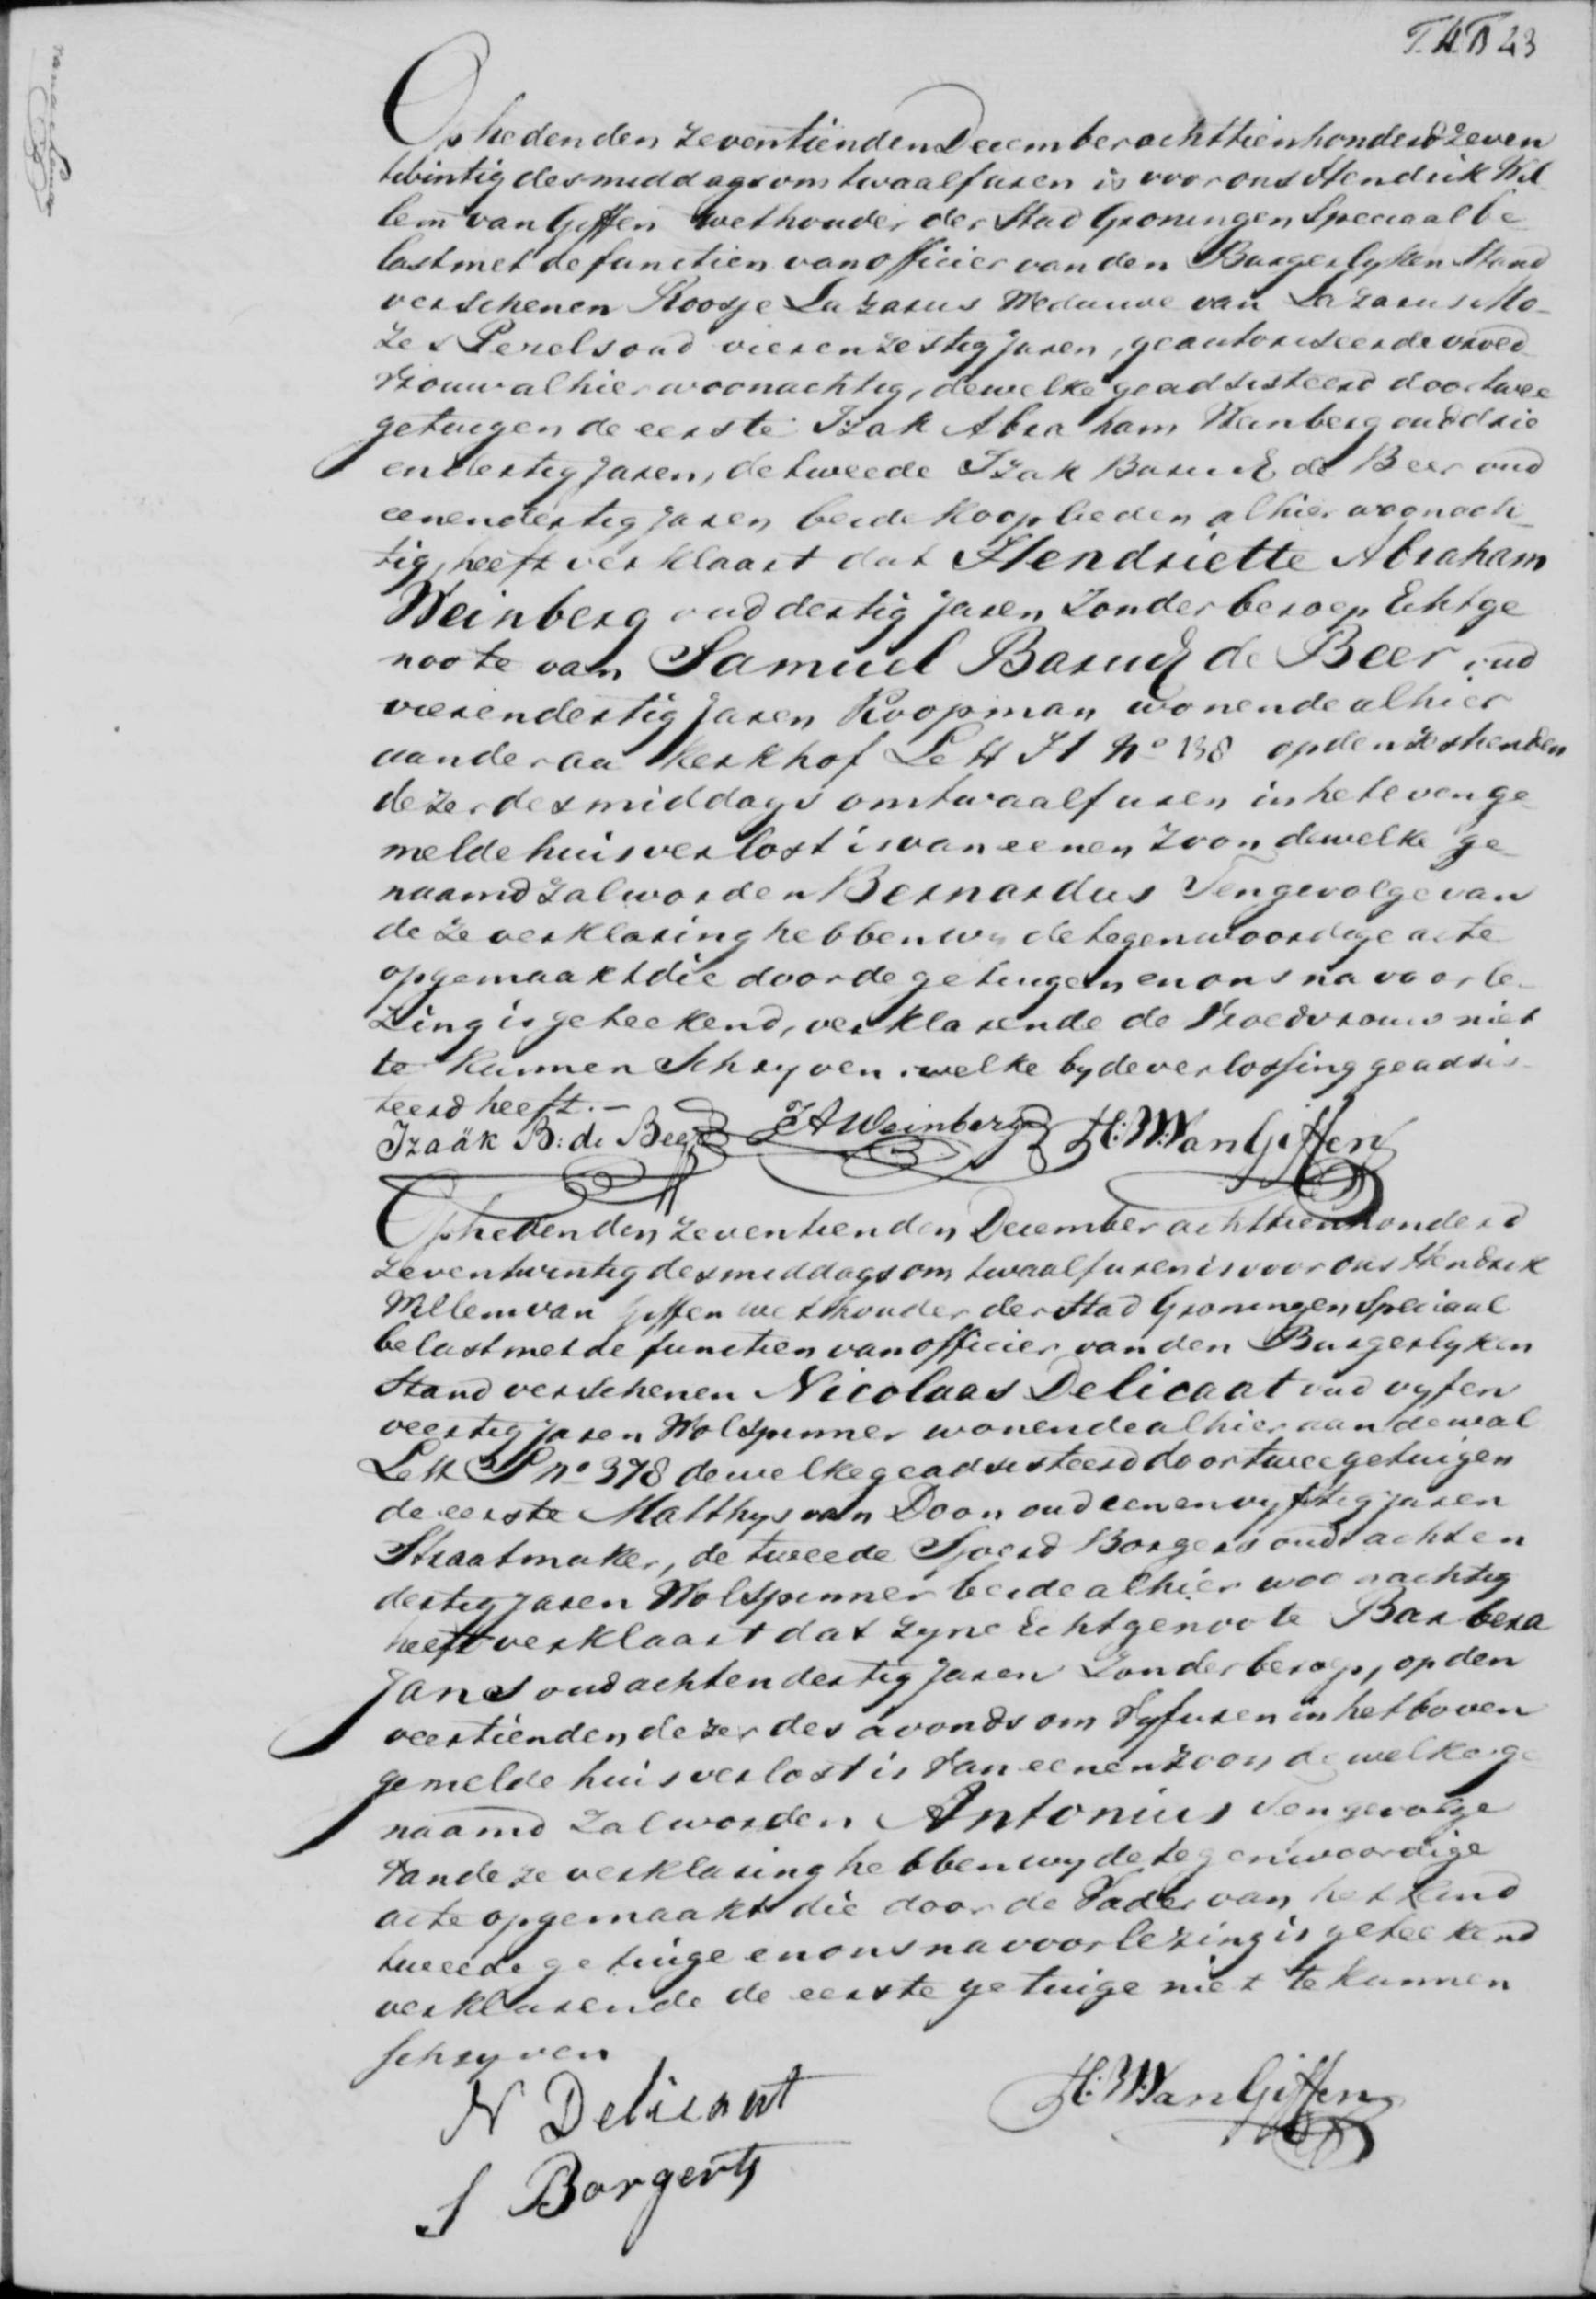 Op heden den zeventienden December achttienhonderd zeven
twintig des middags om twaalf uren is voor ons Hendrik Wil
lem van Giffen wethouder der Stad Groningen Speciaal be
last met de functien van officier van den Burgerlyken Stand
verschenen Roosje Lazarus Weduwe van Lazarus Mo-
zes Perels oud vierenzestig jaren, geautoriseerde vroed
vrouw alhier woonachtig, dewelke geadsisteerd door twee
getuigen de eerste Izak Abraham Weinberg oud drie
endertig jaren, de tweede Izak Baruch de Beer oud
eenendertig jaren beide Kooplieden alhier woonach-
tig, heeft verklaart dat Hendriette Abraham
Weinberg oud dertig jaren zonder beroep Echtge
noote van Samuel Baruch de Beer oud
vierendertig jaren Koopman wonende alhier
aan der aa Kerkhof Lett H No 138 op den zestienden
dezer des middags om twaalf uren in het even ge
melde huis verlost is van eenen zoon dewelke ge
naamd zal worden Bernardus Tengevolge van
deze verklaring hebben wy de tegenwoordige acte
opgemaakt die door de getuigen en ons na voorle-
zing is geteekend, verklarende de Vroedvrouw niet
te kunnen Schryven. welke by de verlossing geadsis-
teerd heeft.-
Izaäk B: de Beer IA Weinberg H: W: Van Giffen
Op heden den zeventienden December achttienhonderd
zeventwintig des middags om twaalf uren is voor ons Hendrik
Willem van Giffen wethouder der Stad Groningen Speciaal
belast met de functien van officier van den Burgerlyken
Stand verschenen Nicolaas Delicaat oud vyfen
veertig jaren Wolspinner wonende alhier aan de wal
Lett P no 378 dewelke geadsisteerd door twee getuigen
de eerste Matthys van Doon oud eenenvyftig jaren
Straatmaker, de tweede Sjoerd Borgers oud achten
dertig jaren Wolspinner beide alhier woonachtig
heeft verklaart dat zyne Echtgenoote Barbera
Jans oud achtendertig jaren zonder beroep, op den
veertienden dezer des avonds om Vyf uren in het boven
gemelde huis verlost is van eenen zoon dewelke ge
naamd zal worden Antonius Tengevolge
van deze verklaring hebben wy de tegenwoordige
acte opgemaakt die door de Vader van het kind
tweede getuige en ons na voorlezing is geteekend
verklarende de eerste getuige niet te kunnen
Schryven
N Delicaat H: W: Van Giffen
S Borgerts